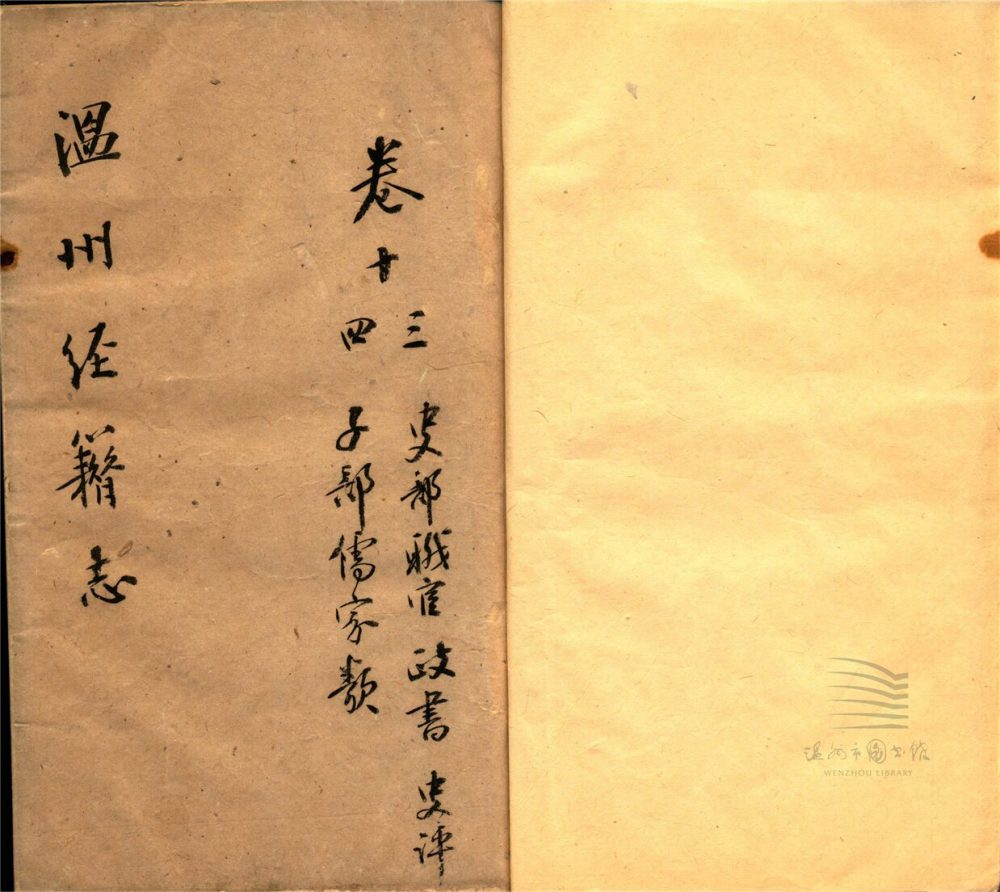 卷十三 史部 職官 政書 史評
四 子部儒家類
溫州经籍志
温州市图书馆
WENZHOU LIBRARY